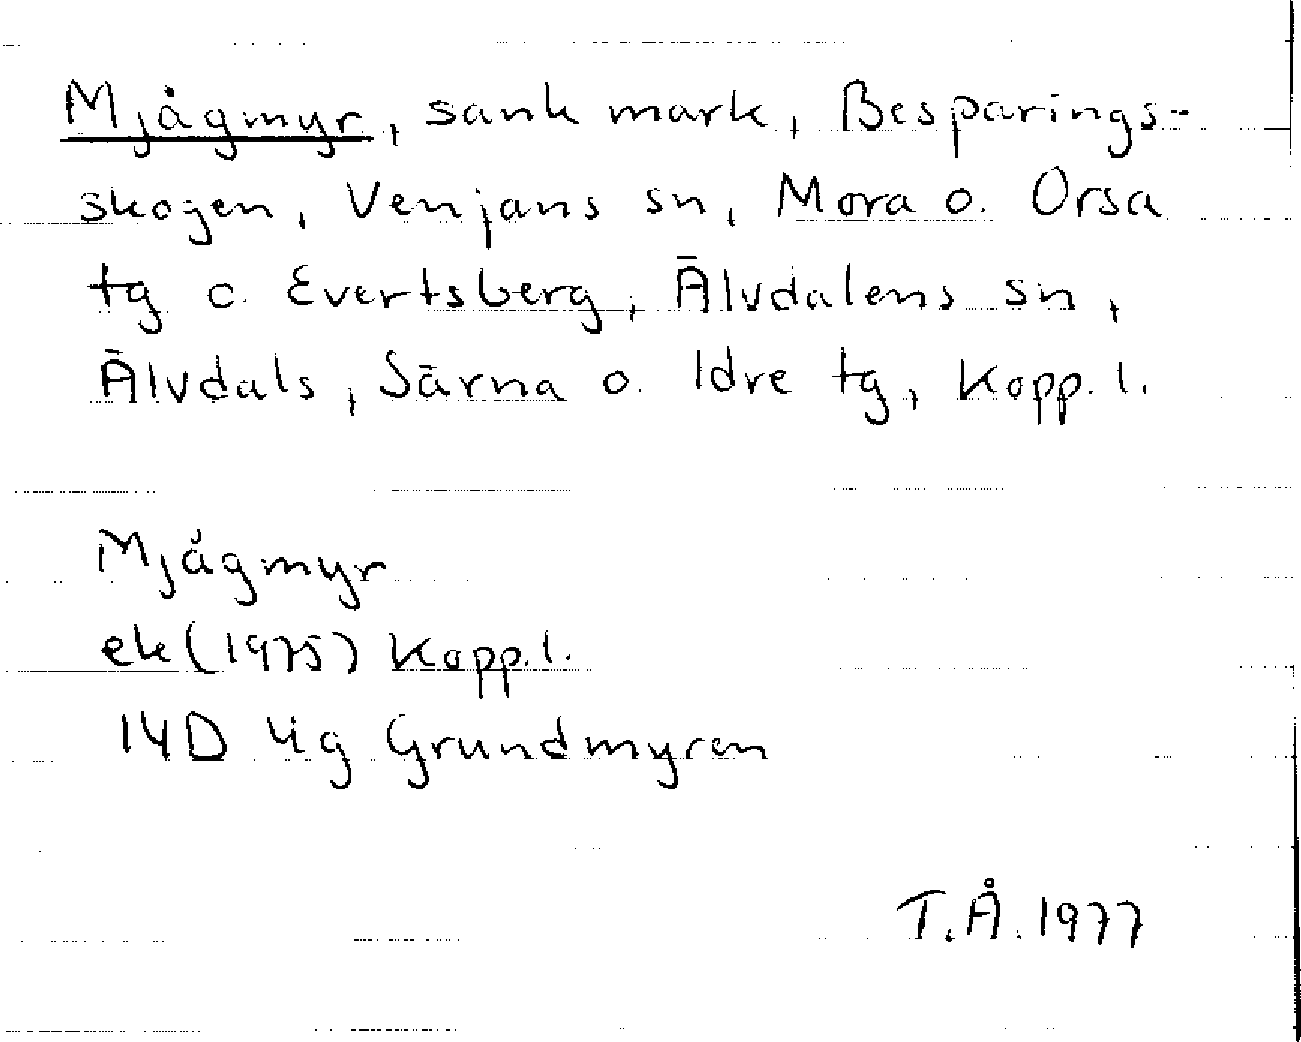 Mjågmyr, sank mark, Besparings-
skogen, Venjans sn, Mora o. Orsa
tg o. Evertsberg, Älvdalens sn,
Älvdals, Särna o. Idre tg, Kopp. l.
Mjågmyr
ek (1975) Kopp. l.
14D 4ig Grundmyren
T.Å. 1977